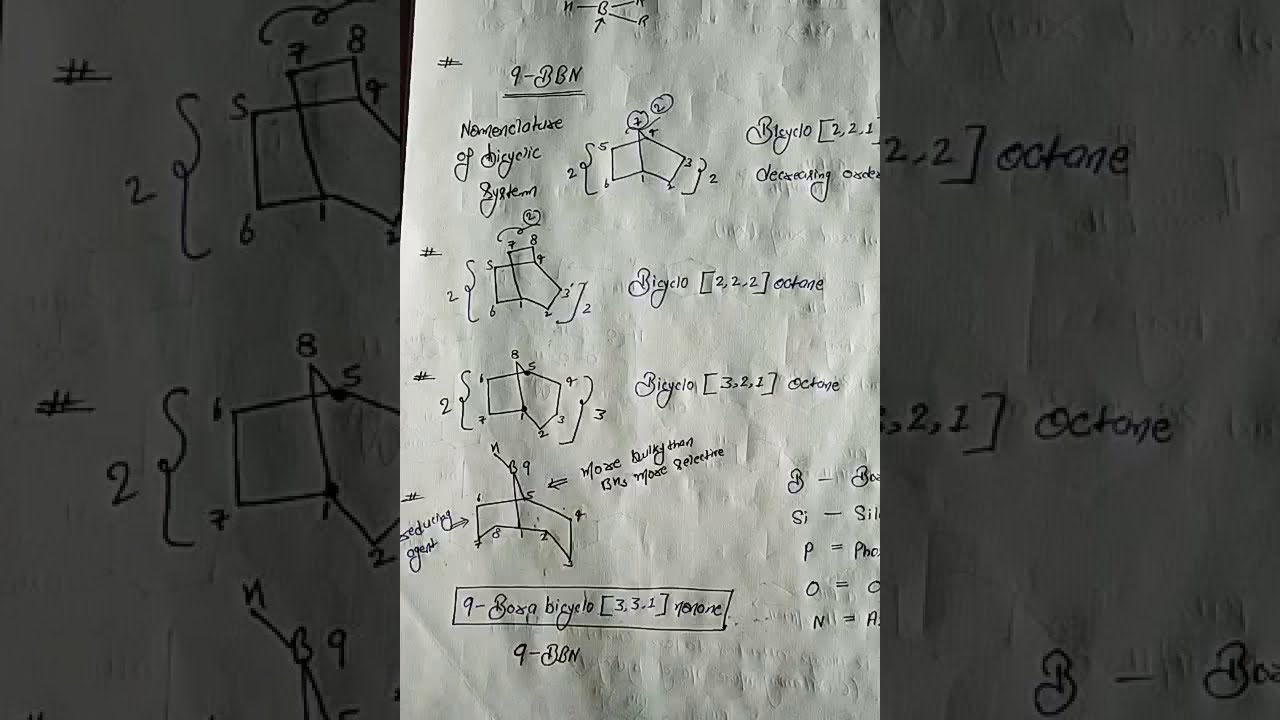 H — B R
R
#
9-BBN
Nomenclature
of bicyclic
System
5
7
2
4
3
2 {
} 2
6
1
2
Bicyclo [2,2,1]
decreasing order
#
2
7 8
5
4
2 {
3
} 2
6
1
2
Bicyclo [2,2,2] octane
#
8
6
5
4
2 {
} 3
7
1
3
2
Bicyclo [3,2,1] octane
H
B 9
⇐ More bulky than
BH3 more selective
#
6
5
4
reducing
agent
7
8
1
2
3
9-Bora bicyclo [3,3,1] nonone
9-BBN
B — Bo
Si — Sil
P = Pho
O = O
N = A
#
7 8
5
4
2 {
6
1
2
2,2] octane
#
8
6
5
2 {
7
1
2
,2,1] octane
H
B 9
5
B — Bo